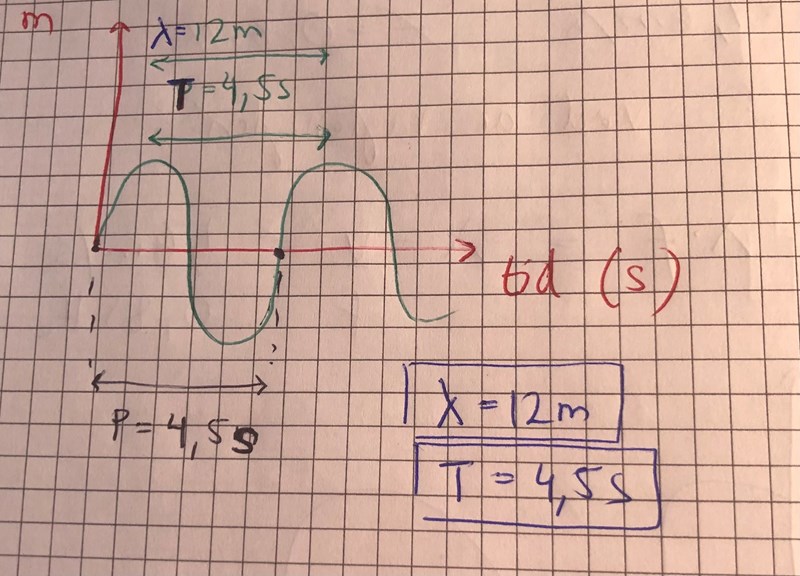 m
λ=12m
T=4,5s
tid (s)
P=4,5s
λ=12m
T=4,5s